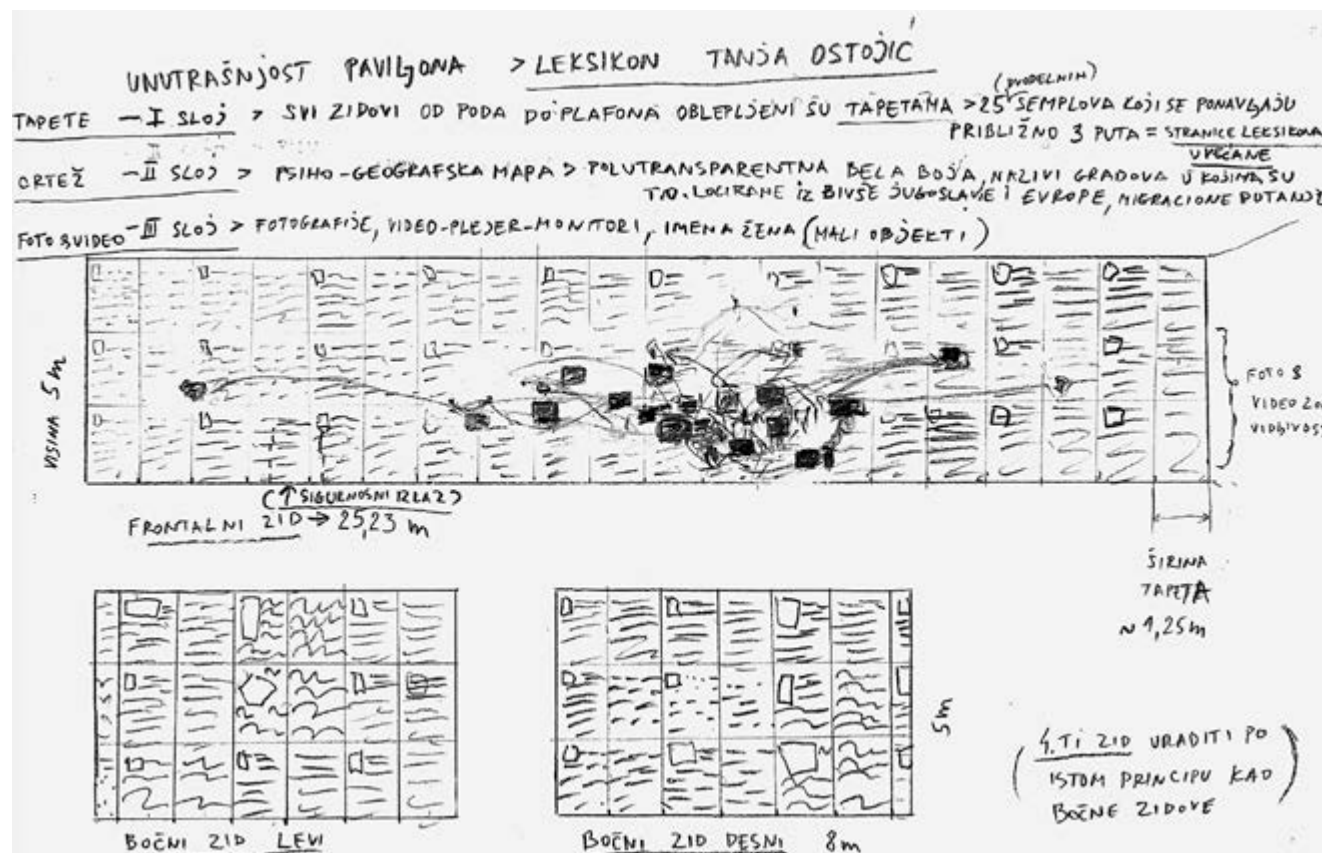 UNUTRAŠNJOST PAVILJONA > LEKSIKON TANJA OSTOJIĆ
TAPETE — I SLOJ > SVI ZIDOVI OD PODA DO PLAFONA OBLEPLJENI SU TAPETAMA > 25 SEMPLOVA KOJI SE PONAVLJAJU
PRIBLIŽNO 3 PUTA = STRANICE LEKSIKONA
UVEĆANE
CRTEŽ — II SLOJ > PSIHO-GEOGRAFSKA MAPA > POLUTRANSPARENTNA BELA BOJA, NAZIVI GRADOVA U KOJIMA SU
T.O. LOCIRANE IZ BIVŠE JUGOSLAVIJE I EVROPE, MIGRACIONE PUTANJE
FOTO & VIDEO — III SLOJ > FOTOGRAFIJE, VIDEO-PLEJER-MONITORI, IMENA ŽENA (MALI OBJEKTI)
VISINA 5m
FOTO &
VIDEO
(↑ SIGURNOSNI IZLAZ)
FRONTALNI ZID → 25,23 m
ŠIRINA
TAPETA
~ 1,25m
5m
(4.TI ZID URADITI PO
ISTOM PRINCIPU KAO
BOČNE ZIDOVE)
BOČNI ZID LEVI
BOČNI ZID DESNI 8m